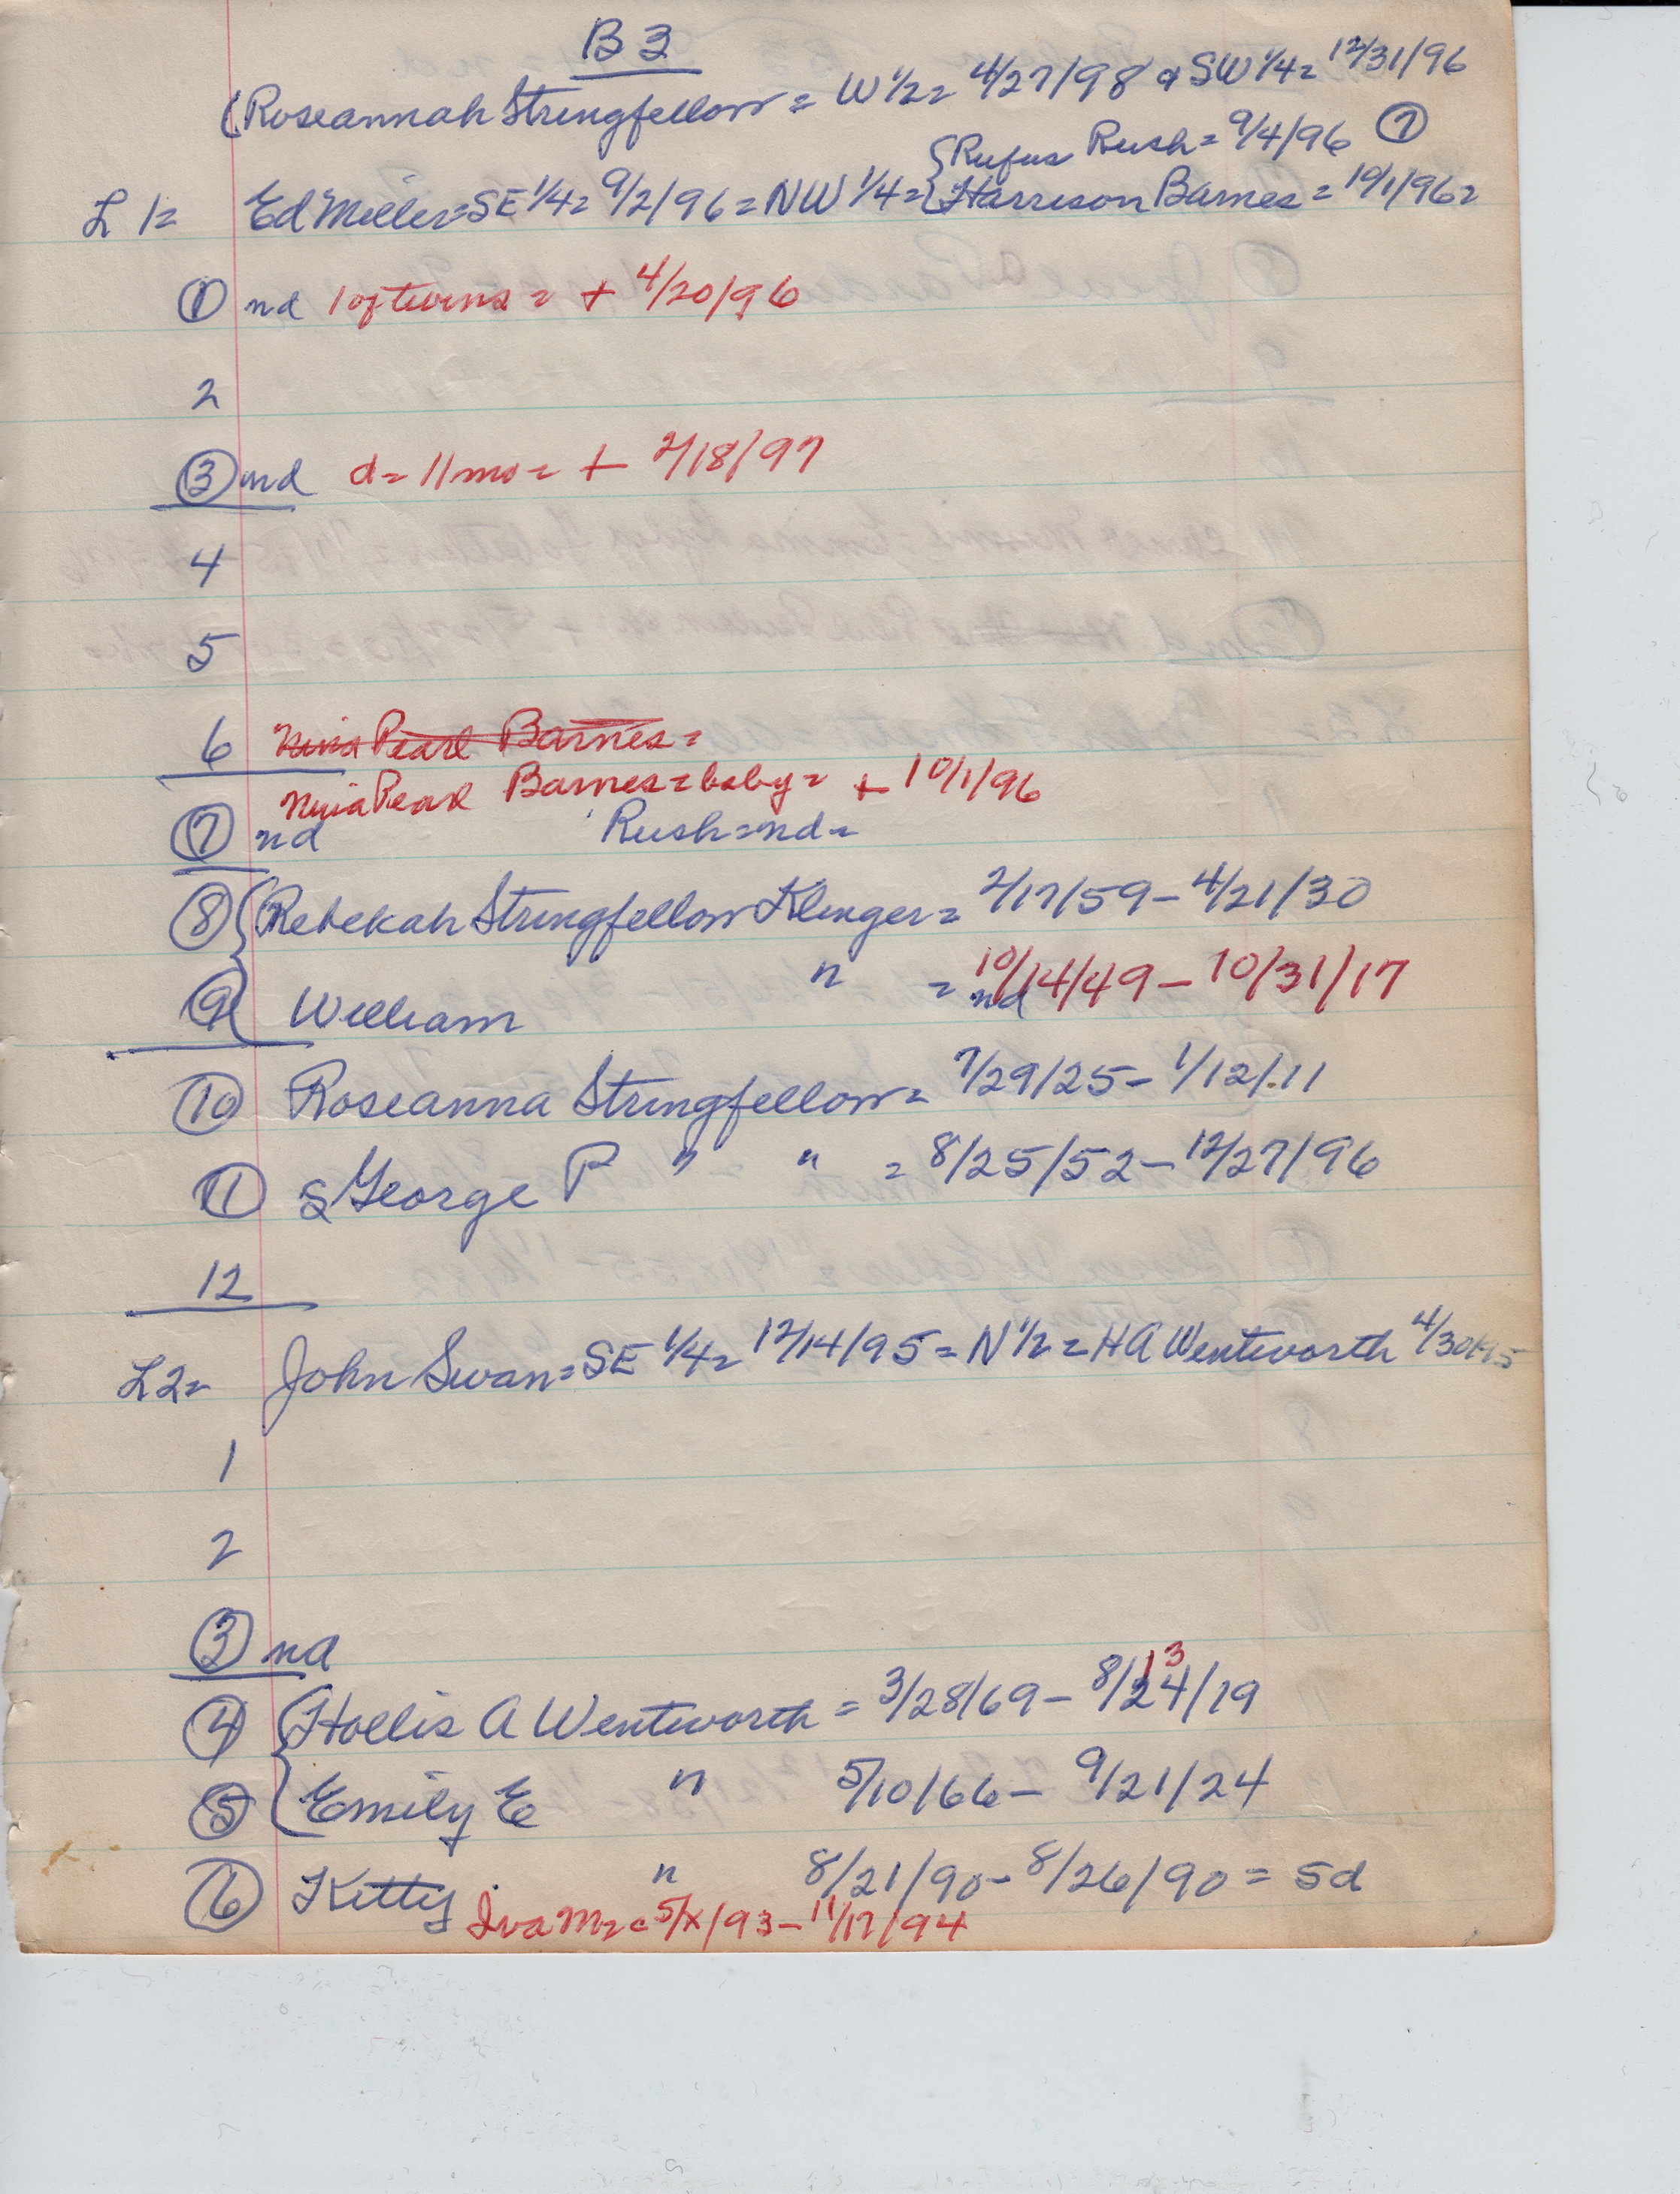 B 3
(Roseannah Stringfellow = W 1/2 = 4/27/98 & SW 1/4 = 12/31/96
{Rufus Rush = 9/4/96 ⑦
L 1 = Ed Miller = SE 1/4 = 9/2/96 = NW 1/4 = {Harrison Barnes = 10/1/96 =
① nd 1 of twins = + 4/20/96
2
③ nd d = 11 mo = + 2/18/97
4
5
6 Nina Pearl Barnes =
Nina Pearl Barnes = baby = + 10/1/96
⑦ nd Rush = nd =
⑧ {Rebekah Stringfellow Klinger = 2/17/59 - 4/21/30
⑨ { William " = nd 10/14/49 - 10/31/17
⑩ Roseanna Stringfellow = 7/29/25 - 1/12/11
⑪ & George P " " = 8/25/52 - 12/27/96
12
L 2 = John Swan = SE 1/4 = 12/14/95 = N 1/2 = H A Wentworth 4/30/
1
2
③ nd
13
④ {Hollis A Wentworth = 3/28/69 - 8/24/19
⑤ {Emily E " 5/10/66 - 9/21/24
⑥ Kitty " 8/21/90 - 8/26/90 = 5d
Iva M = 5/x/93 - 11/17/94